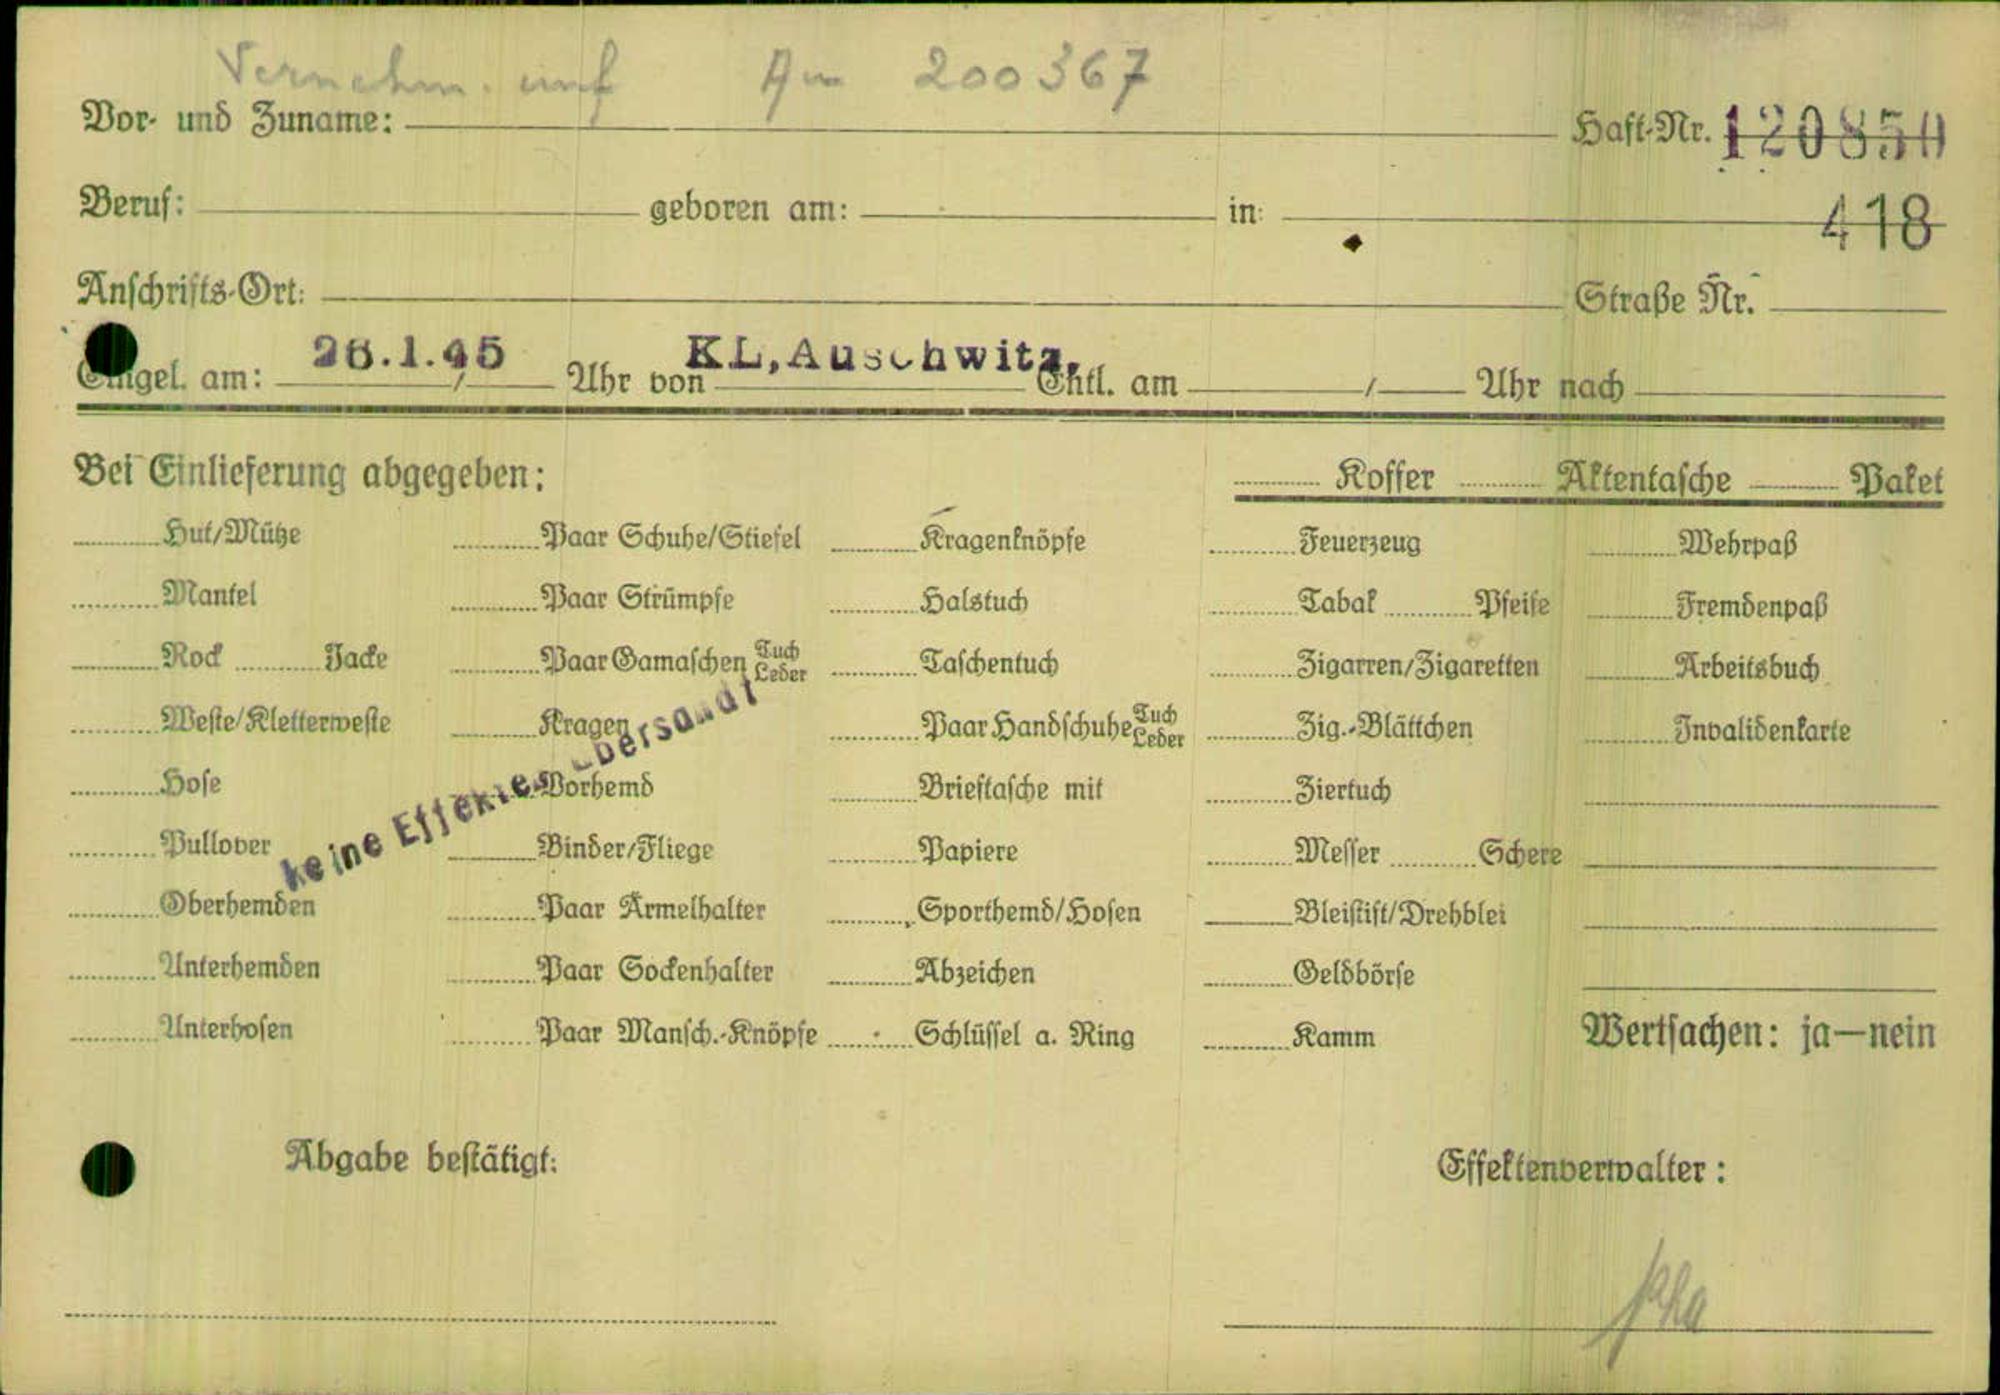 Vernehm. auf Au 200367
Vor- und Zuname: Haft-Nr. 120850
Beruf: geboren am: in: 418
Anschrifts-Ort: Straße Nr.
Eingel. am: 26.1.45 Uhr von KL, Auschwitz, Entl. am / Uhr nach
Bei Einlieferung abgegeben: Koffer Aktentasche Paket
Hut/Mütze Paar Schuhe/Stiefel Kragenknöpfe Feuerzeug Wehrpaß
Mantel Paar Strümpfe Halstuch Tabak Pfeife Fremdenpaß
Rock Jacke Paar Gamaschen Tuch Leder Taschentuch Zigarren/Zigaretten Arbeitsbuch
Weste/Kletterweste Kragen Paar Handschuhe Tuch Leder Zig.-Blättchen Invalidenkarte
Hose Vorhemd Brieftasche mit Ziertuch
Pullover Binder/Fliege Papiere Messer Schere
keine Effekten übersandt
Oberhemden Paar Ärmelhalter Sporthemd/Hosen Bleistift/Drehblei
Unterhemden Paar Sockenhalter Abzeichen Geldbörse
Unterhosen Paar Mansch.-Knöpfe Schlüssel a. Ring Kamm Wertsachen: ja—nein
Abgabe bestätigt: Effektenverwalter: